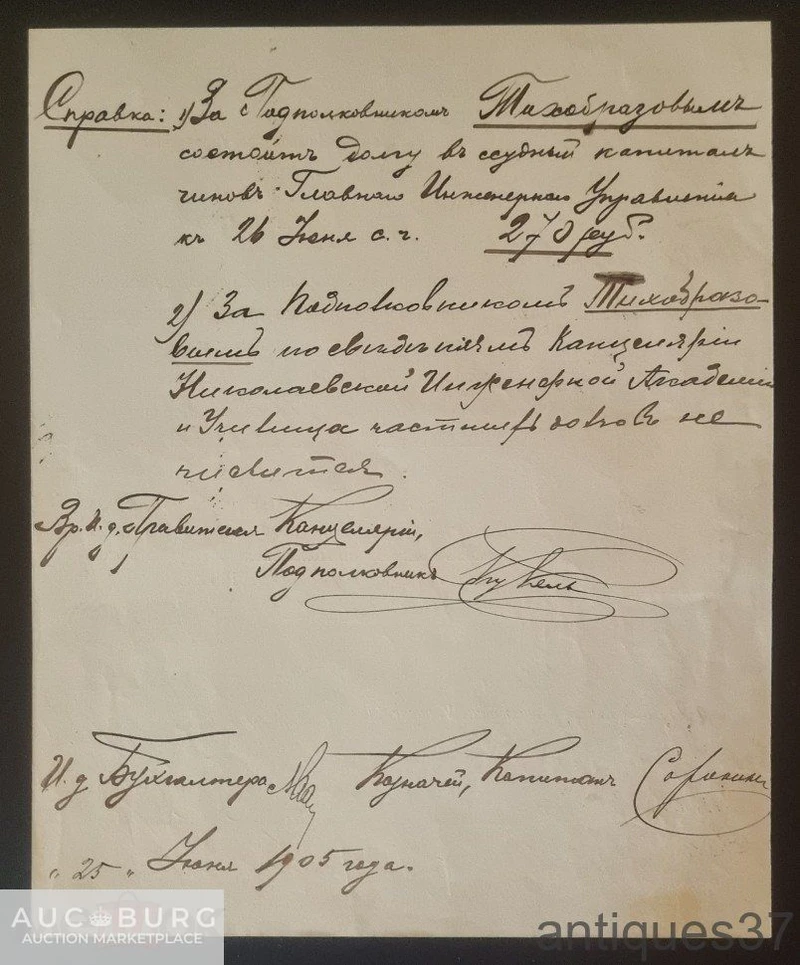 Справка: 1) За Подполковникомъ Тихобразовымъ
состоитъ долгу въ ссудный капиталъ
чиновъ Главнаго Инженернаго Управленія
къ 26 Іюня с. г. 270 руб.
2) За Подполковникомъ Тихобразо-
вымъ по свѣдѣніямъ Канцеляріи
Николаевской Инженерной Академіи
и Училища частныхъ долговъ не
числится.
Вр. И. д. Правителя Канцеляріи,
Подполковникъ
И. д. Бухгалтера Казначей, Капитанъ Сорокинъ
„25„ Іюня 1905 года.
AUCBURG
AUCTION MARKETPLACE
antiques37